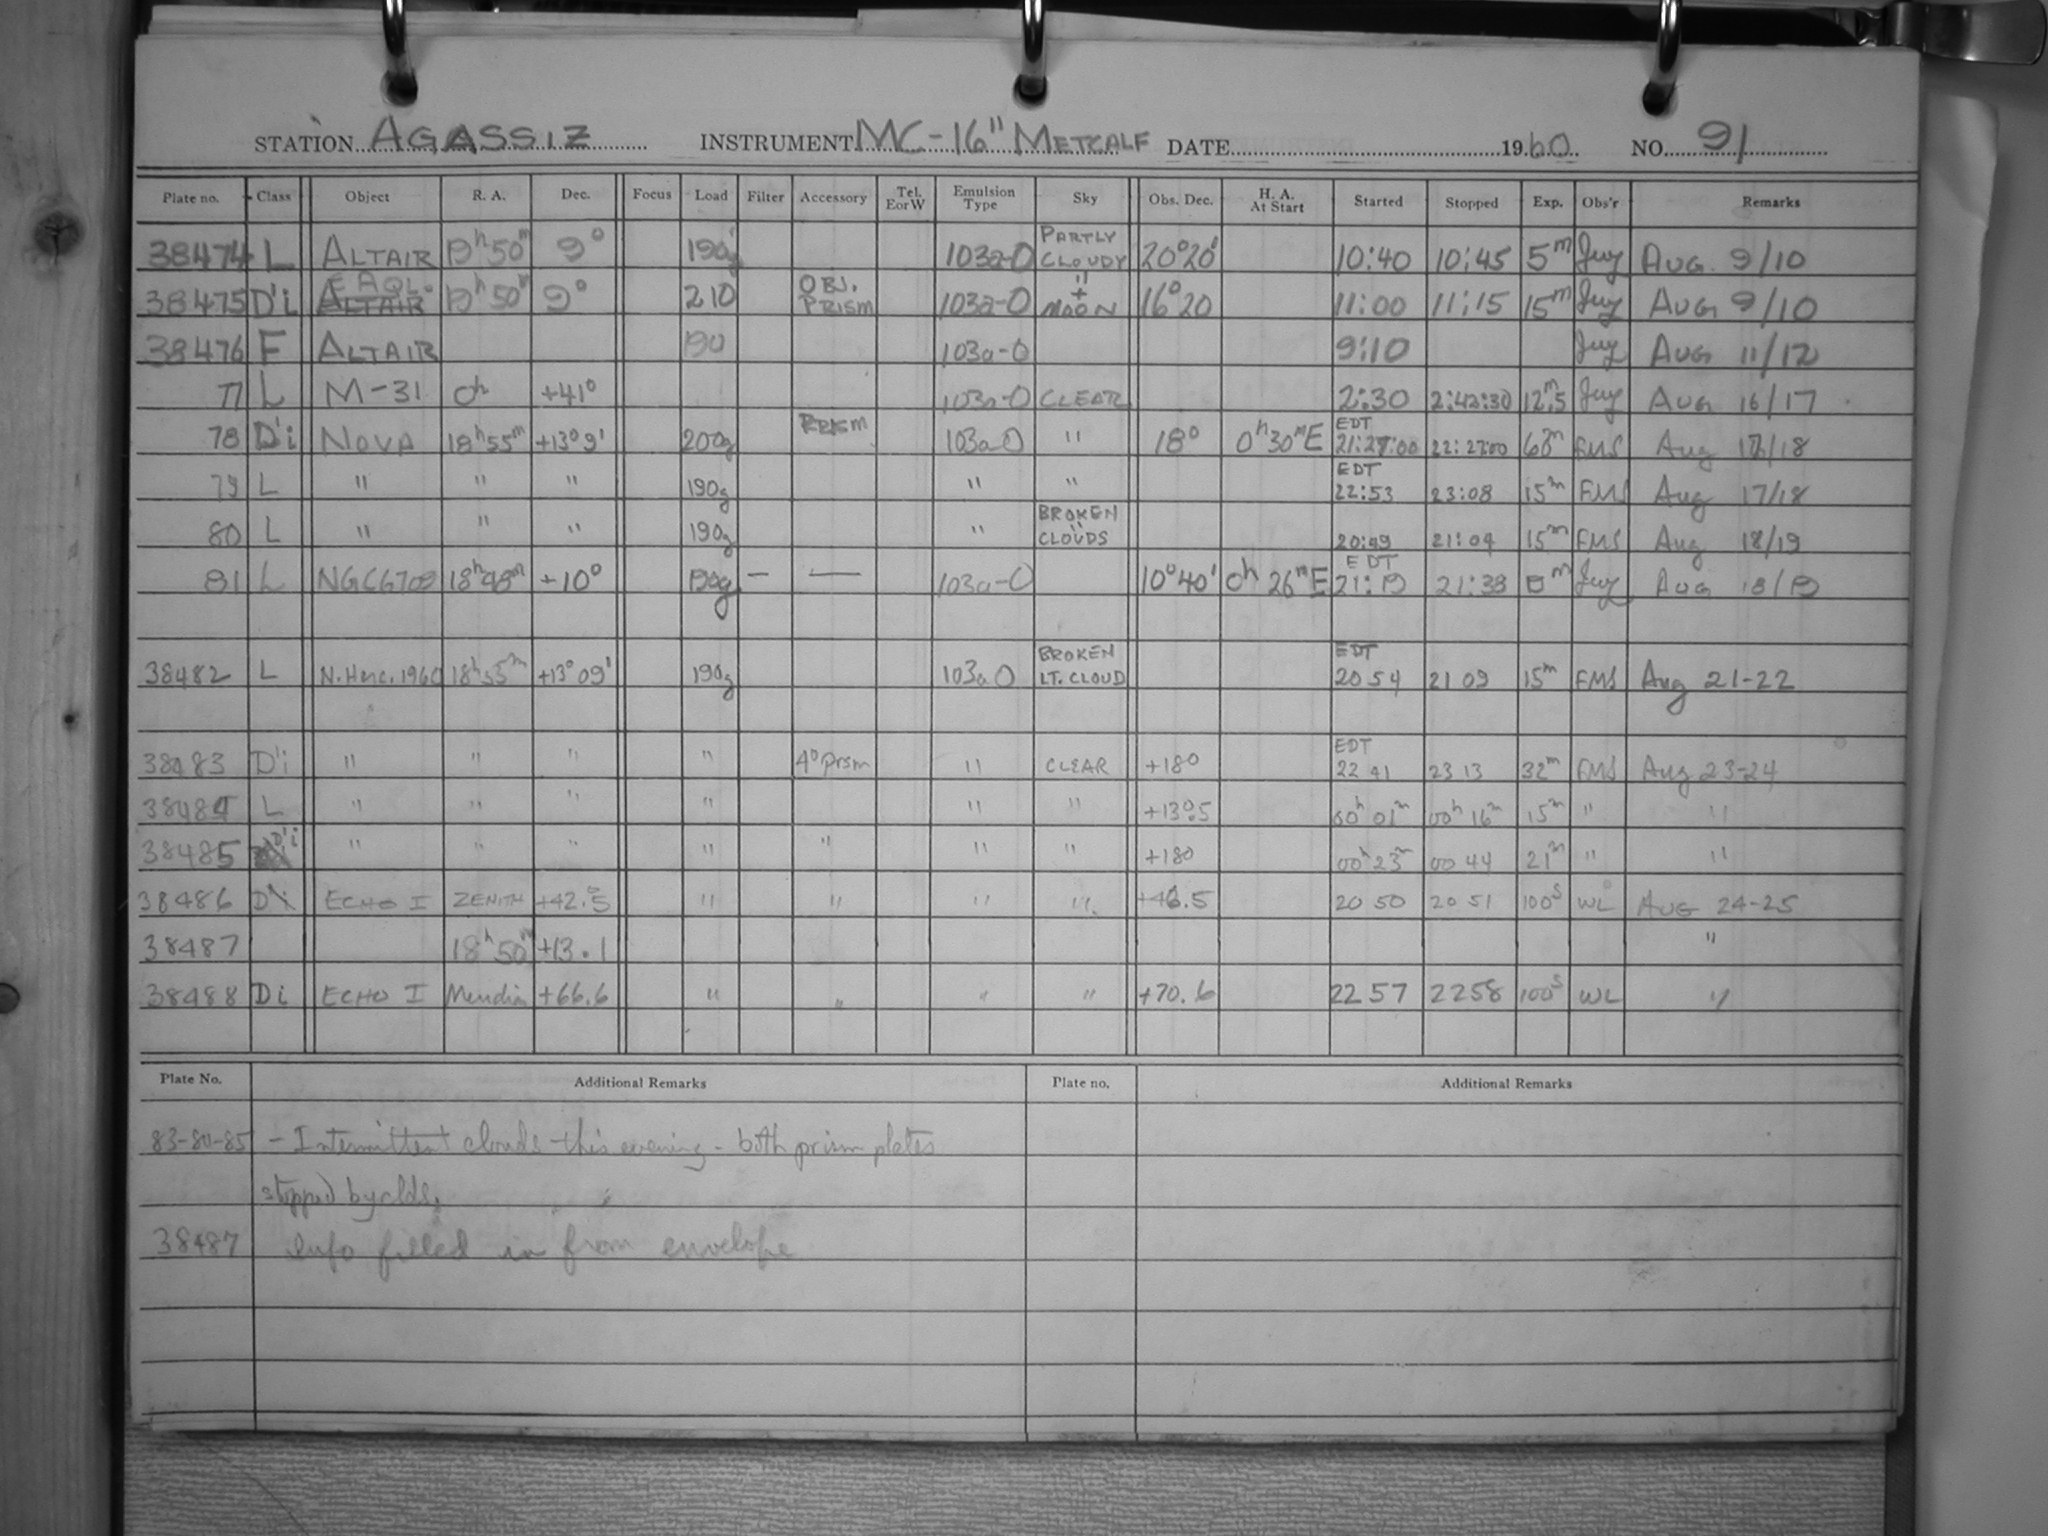 STATION AGASSIZ INSTRUMENT MC-16" METCALF DATE 1960 NO. 91
Plate no. Class Object R. A. Dec. Focus Load Filter Accessory Tel. EorW Emulsion Type Sky Obs. Dec. H. A. At Start Started Stopped Exp. Obs'r Remarks
38474 L ALTAIR 19h 50m 9° 190g 103a-O PARTLY CLOUDY 20°20' 10:40 10:45 5m AUG. 9/10
38475 D'i E AQL. ALTAIR 19h 50m 9° 210 OBJ. PRISM 103a-O " + MOON 16°20 11:00 11:15 15m AUG 9/10
38476 F ALTAIR 190 103a-O 9:10 AUG 11/12
77 L M-31 0h +41° 103a-O CLEAR 2:30 2:42:30 12m.5 AUG 16/17
78 D'i NOVA 18h 55m +13°9' 200g PRISM 103a-O " 18° 0h 30m E EDT 21:27:00 22:27:00 60m EMS Aug 17/18
79 L " " " 190g " " EDT 22:53 23:08 15m EMS Aug 17/18
80 L " " " 190g " BROKEN CLOUDS 20:49 21:04 15m EMS Aug 18/19
81 L NGC6709 18h 48m +10° 190g — — 103a-O 10°40' 0h 26m E EDT 21:19 21:38 m AUG 18/19
38482 L N. Herc. 1960 18h 55m +13°09' 190g 103a O BROKEN LT. CLOUD EDT 20 54 21 09 15m EMS Aug 21-22
38483 D'i " " " " 4° Prsm " CLEAR +180 EDT 22 41 23 13 32m EMS Aug 23-24
38484 L " " " " " " +13°.5 00h 01m 00h 16m 15m " "
38485 D'i " " " " " " " +180 00h 23m 00 44 21m " "
38486 D'i ECHO I ZENITH +42°.5 " " " " +46.5 20 50 20 51 100s WL AUG 24-25
38487 18h 50m +13.1 "
38488 Di ECHO I Meridian +66.6 " " " " +70.6 22 57 22 58 100s WL "
Plate No. Additional Remarks Plate no. Additional Remarks
83-84-85 - Intermittent clouds this evening - both prism plates
stopped by clds.
38487 Info filled in from envelope